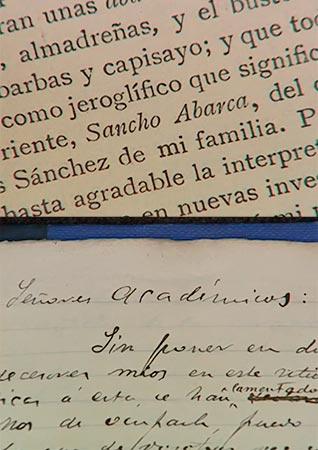 ran unas
, almadreñas, y el busto
barbas y capisayo; y que tod
como jeroglífico que signific
riente, Sancho Abarca, del
s Sánchez de mi familia. P
hasta agradable la interpret
en nuevas inves
Señores Académicos:
Sin poner en d
ecesores míos en este
icas á esta, se han lamentado
nos de ocuparla, puedo